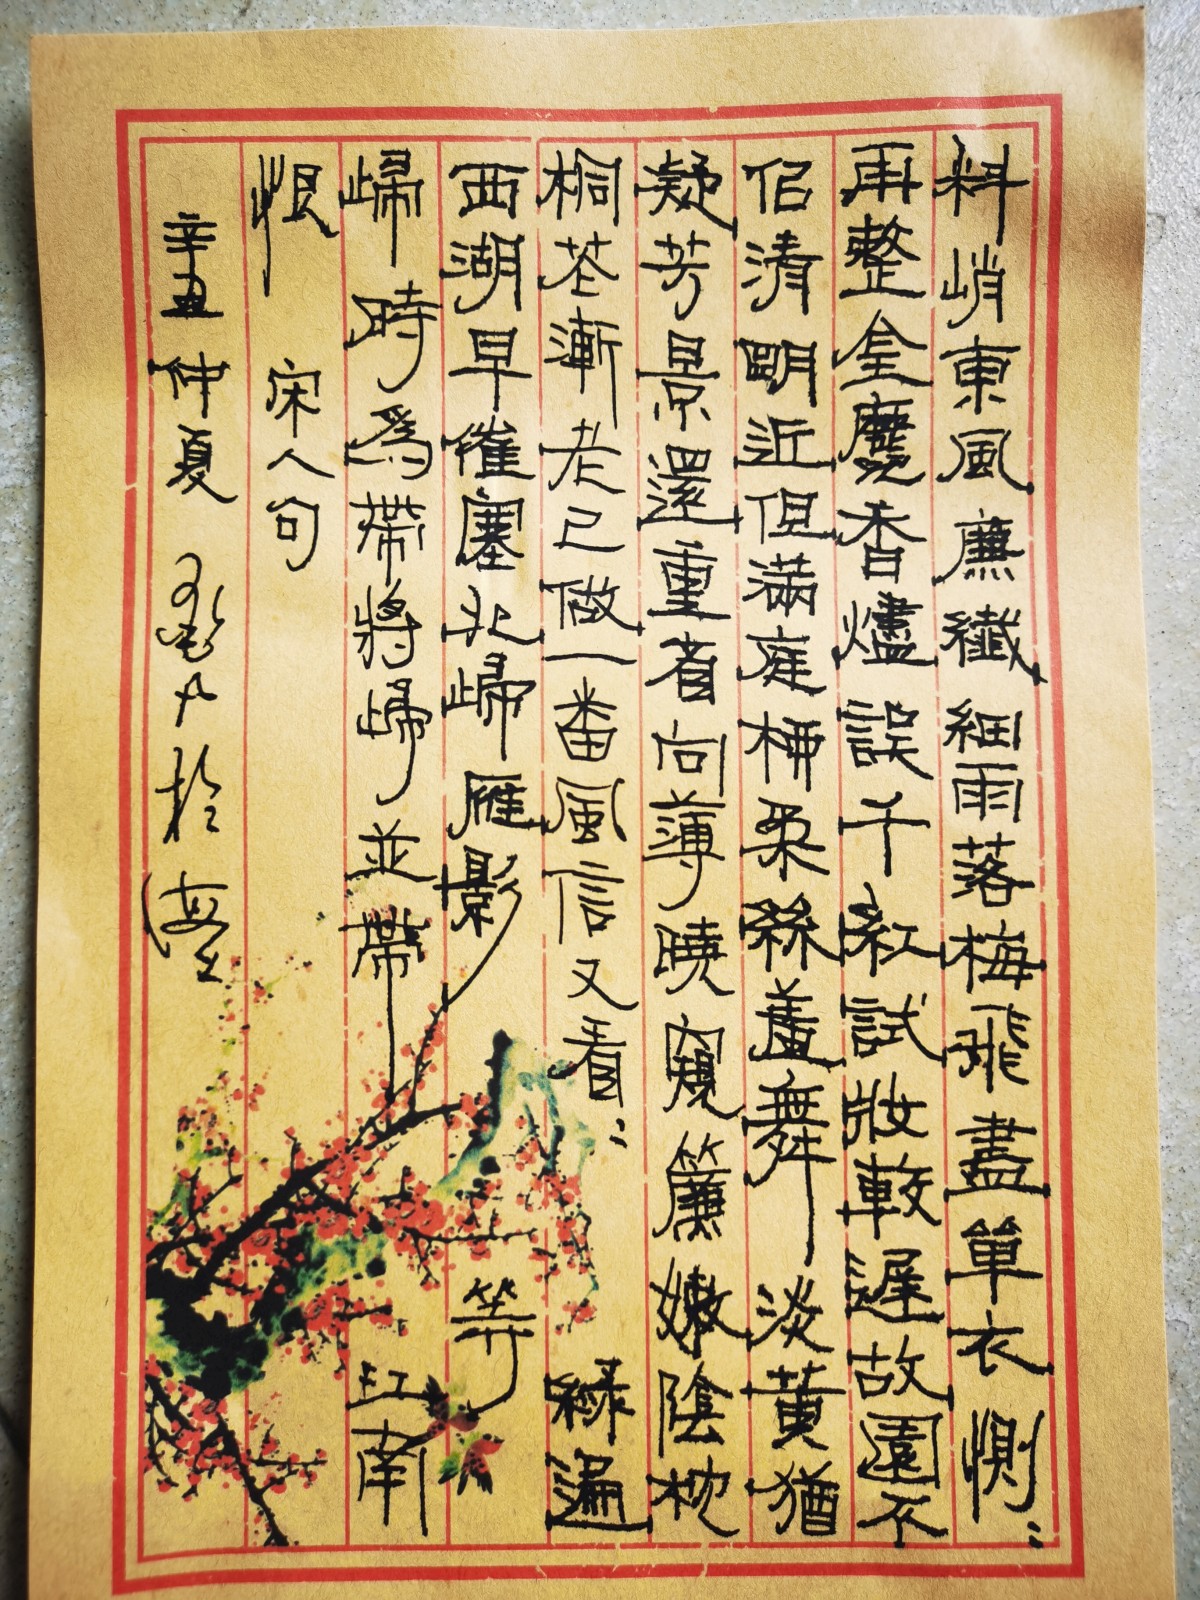 料峭東風廉纖細雨落梅飛盡單衣惻〻
再整金麑香爐誤千紅試妝較遲故園不
佀清明近但滿庭柳柔絲羞舞淡黄猶
凝芳景還重看向薄曉窺簾嫩陰枕
桐苍漸老已做一番風信又看〻綠遍
西湖早催塞北歸雁影等
歸時爲帶將歸並帶江南
恨宋人句
辛丑仲夏